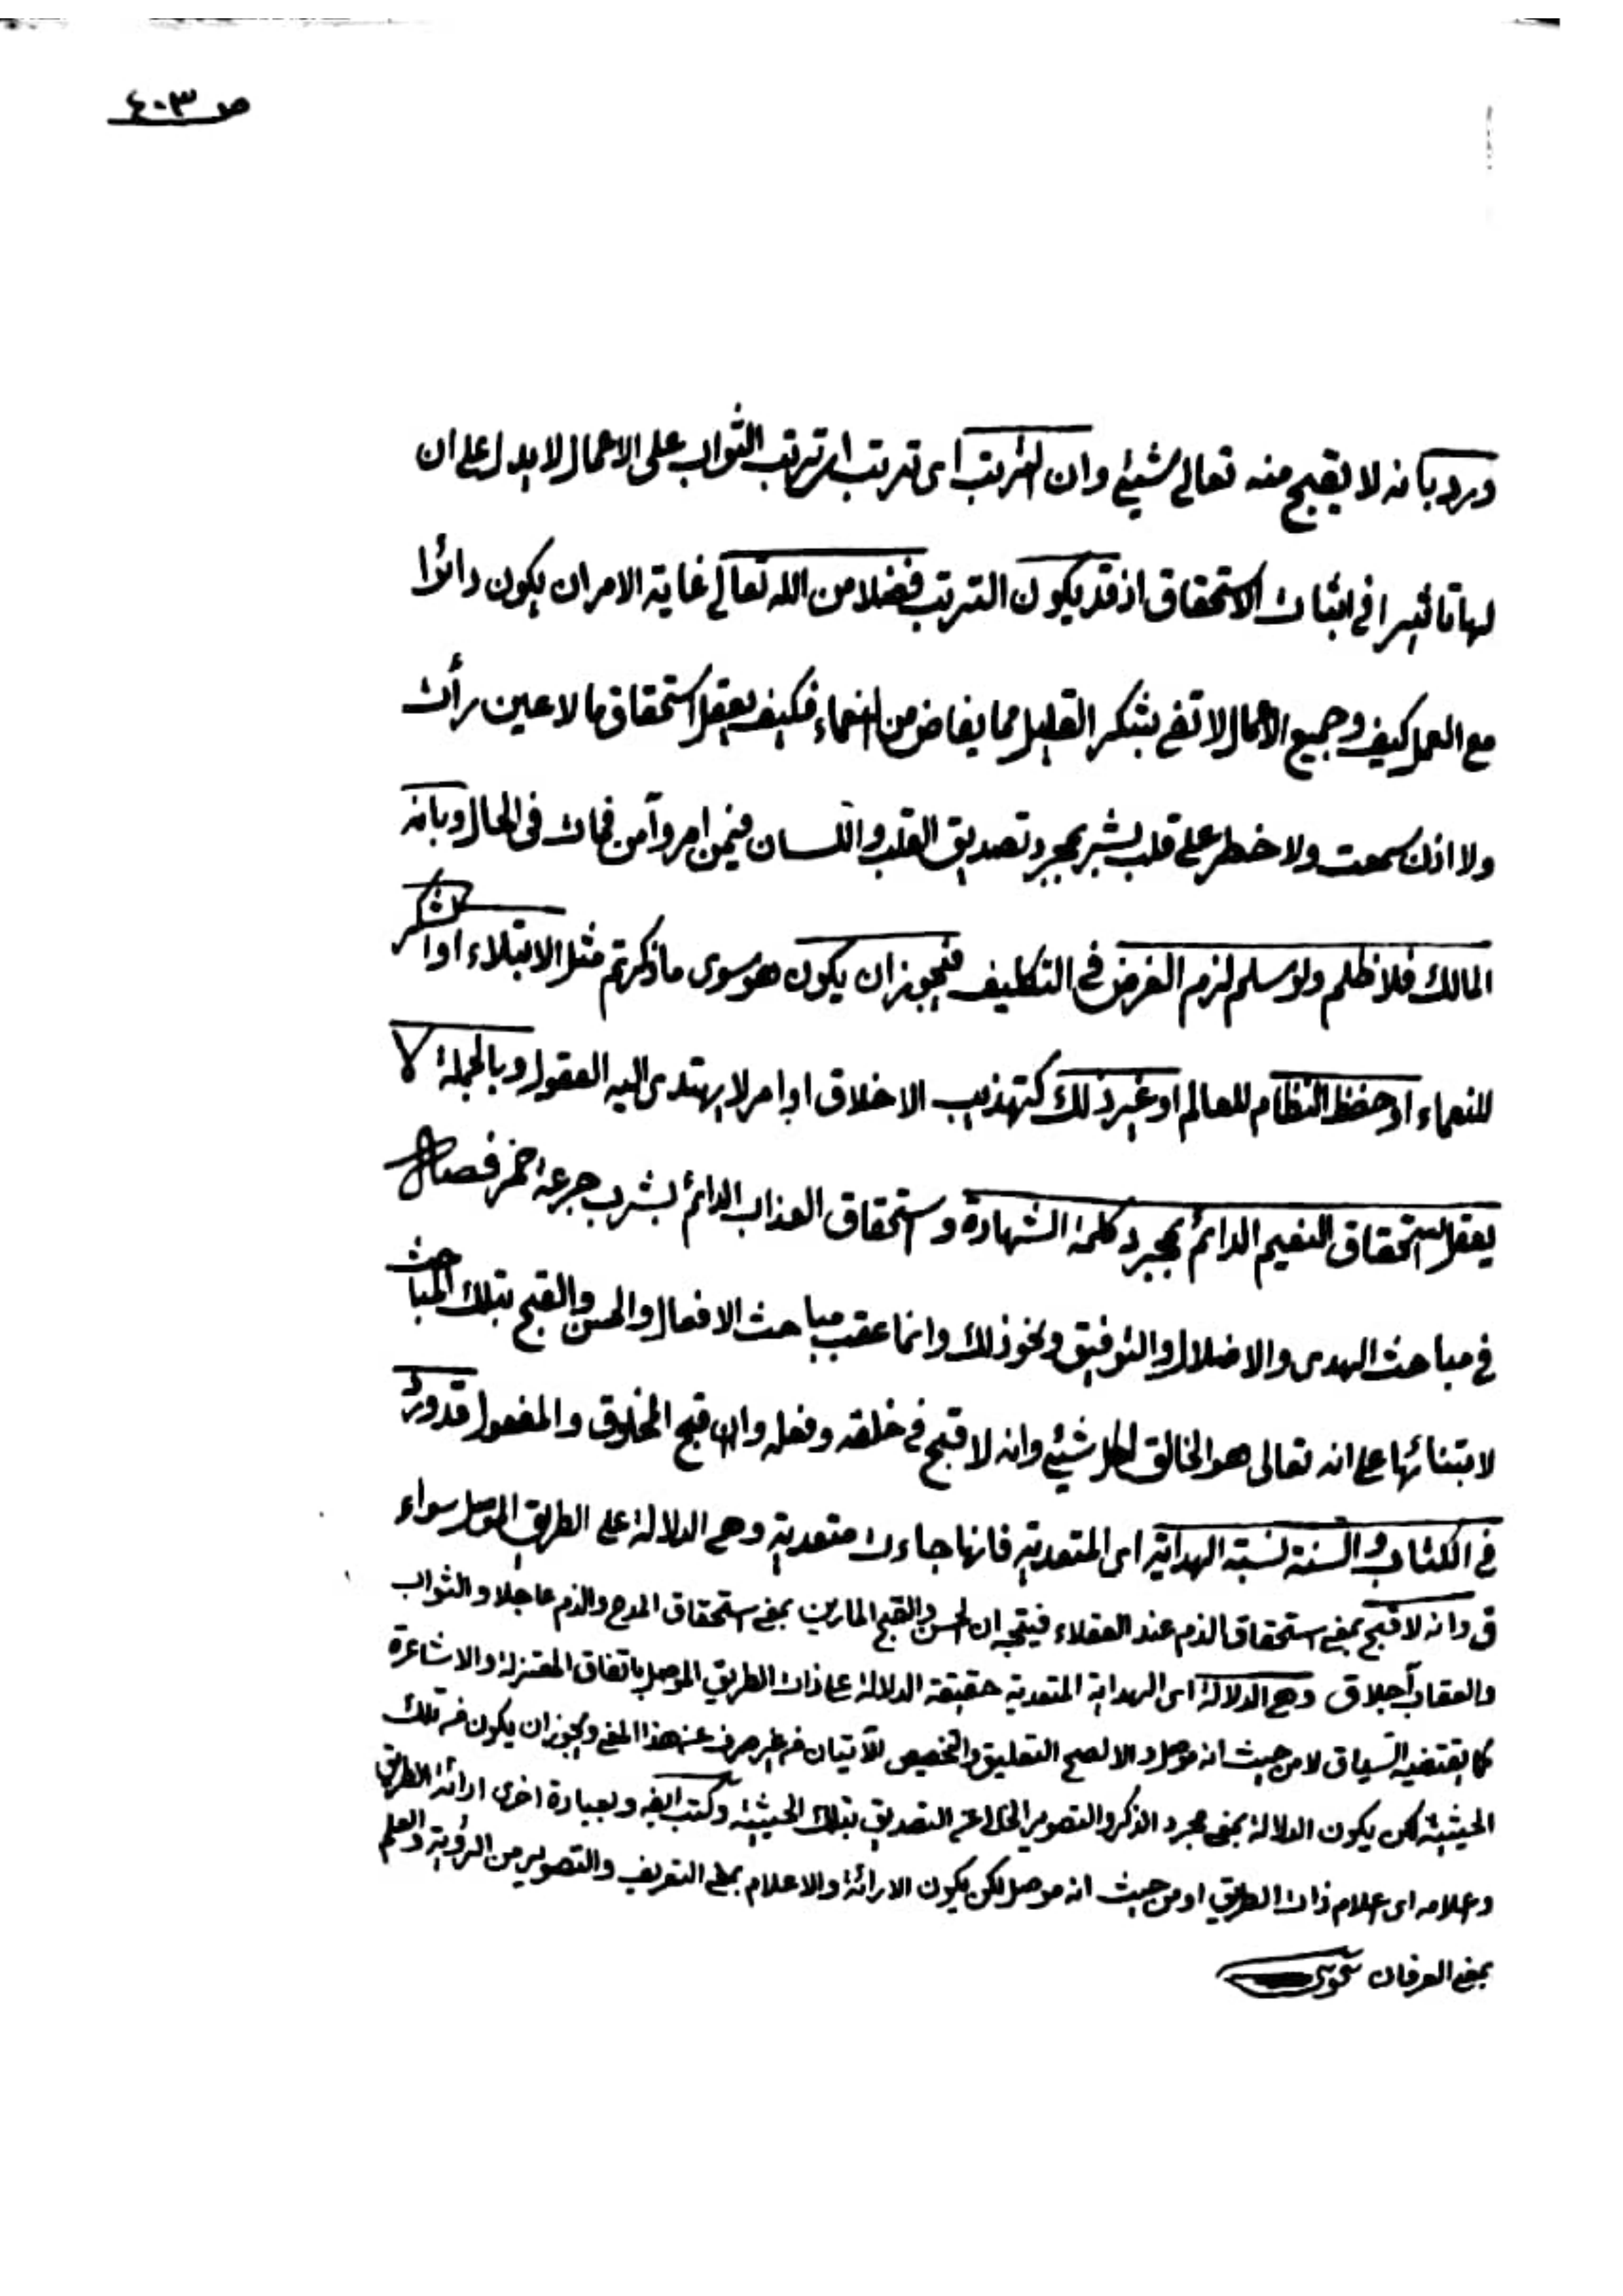 ص ٤٠٣
ورد بانه لا يقبح منه تعالى شيئ وان الترتب اى ترتب الثواب على الاعمال لا يدل على ان
لها تاثيرا فى اثبات الاستحقاق اذ قد يكون الترتب فضلا من الله تعالى غاية الامر ان يكون دائرا
مع العمل كيف وجميع الاعمال لا تفى بشكر القليل مما يفاض من النعماء فكيف يعقل استحقاق ما لا عين رأت
ولا اذن سمعت ولا خطر على قلب بشر بمجرد تصديق القلب واللسان فيمن امر وآمن فمات فى الحال وبانه
المالك فلا ظلم ولو سلم لزم الغرض فى التكليف فيجوز ان يكون هو سوى ما ذكرتم مثل الابتلاء او الشكر
للنعماء او حفظ النظام للعالم او غير ذلك كتهذيب الاخلاق او امر لا يهتدى اليه العقول وبالجملة لا
يعقل استحقاق النعيم الدائم بمجرد كلمة الشهادة واستحقاق العذاب الدائم بشرب جرعة خمر فصل
فى مباحث الهدى والاضلال والتوفيق ونحو ذلك وانما عقب مباحث الافعال والحسن والقبح بتلك المباحث
لابتنائها على انه تعالى هو الخالق لكل شيئ وانه لا قبح فى خلقه وفعله وان قبح المخلوق والمفعول قد ورد
فى الكتاب والسنة نسبة الهداية اى المتعدية فانها جاءت متعدية وهى الدلالة على الطريق الموصل سواء
ق وانه لا قبح بمعنى استحقاق الذم عند العقلاء فيتجه ان الحسن والقبح المارين بمعنى استحقاق المدح والذم عاجلا والثواب
والعقاب آجلا ق وهى الدلالة اى الهداية المتعدية حقيقة الدلالة على ذات الطريق الموصل باتفاق المعتزلة والاشاعرة
كما يقتضيه السياق لا من حيث انه موصل والا لصح التعليق والتخصيص للآتيان من غير صرف عن هذا المعنى ويجوز ان يكون من تلك
الحيثية لكن يكون الدلالة بمعنى مجرد الذكر والتصوير الخال عن التصديق بتلك الحيثية وكتب ايضه وبعبارة اخرى ارائة الطريق
وعلامه اى اعلام ذات الطريق او من حيث انه موصل لكن يكون الارائة والاعلام بمعنى التعريف والتصوير من الرؤية والعلم
بمعنى العرفان